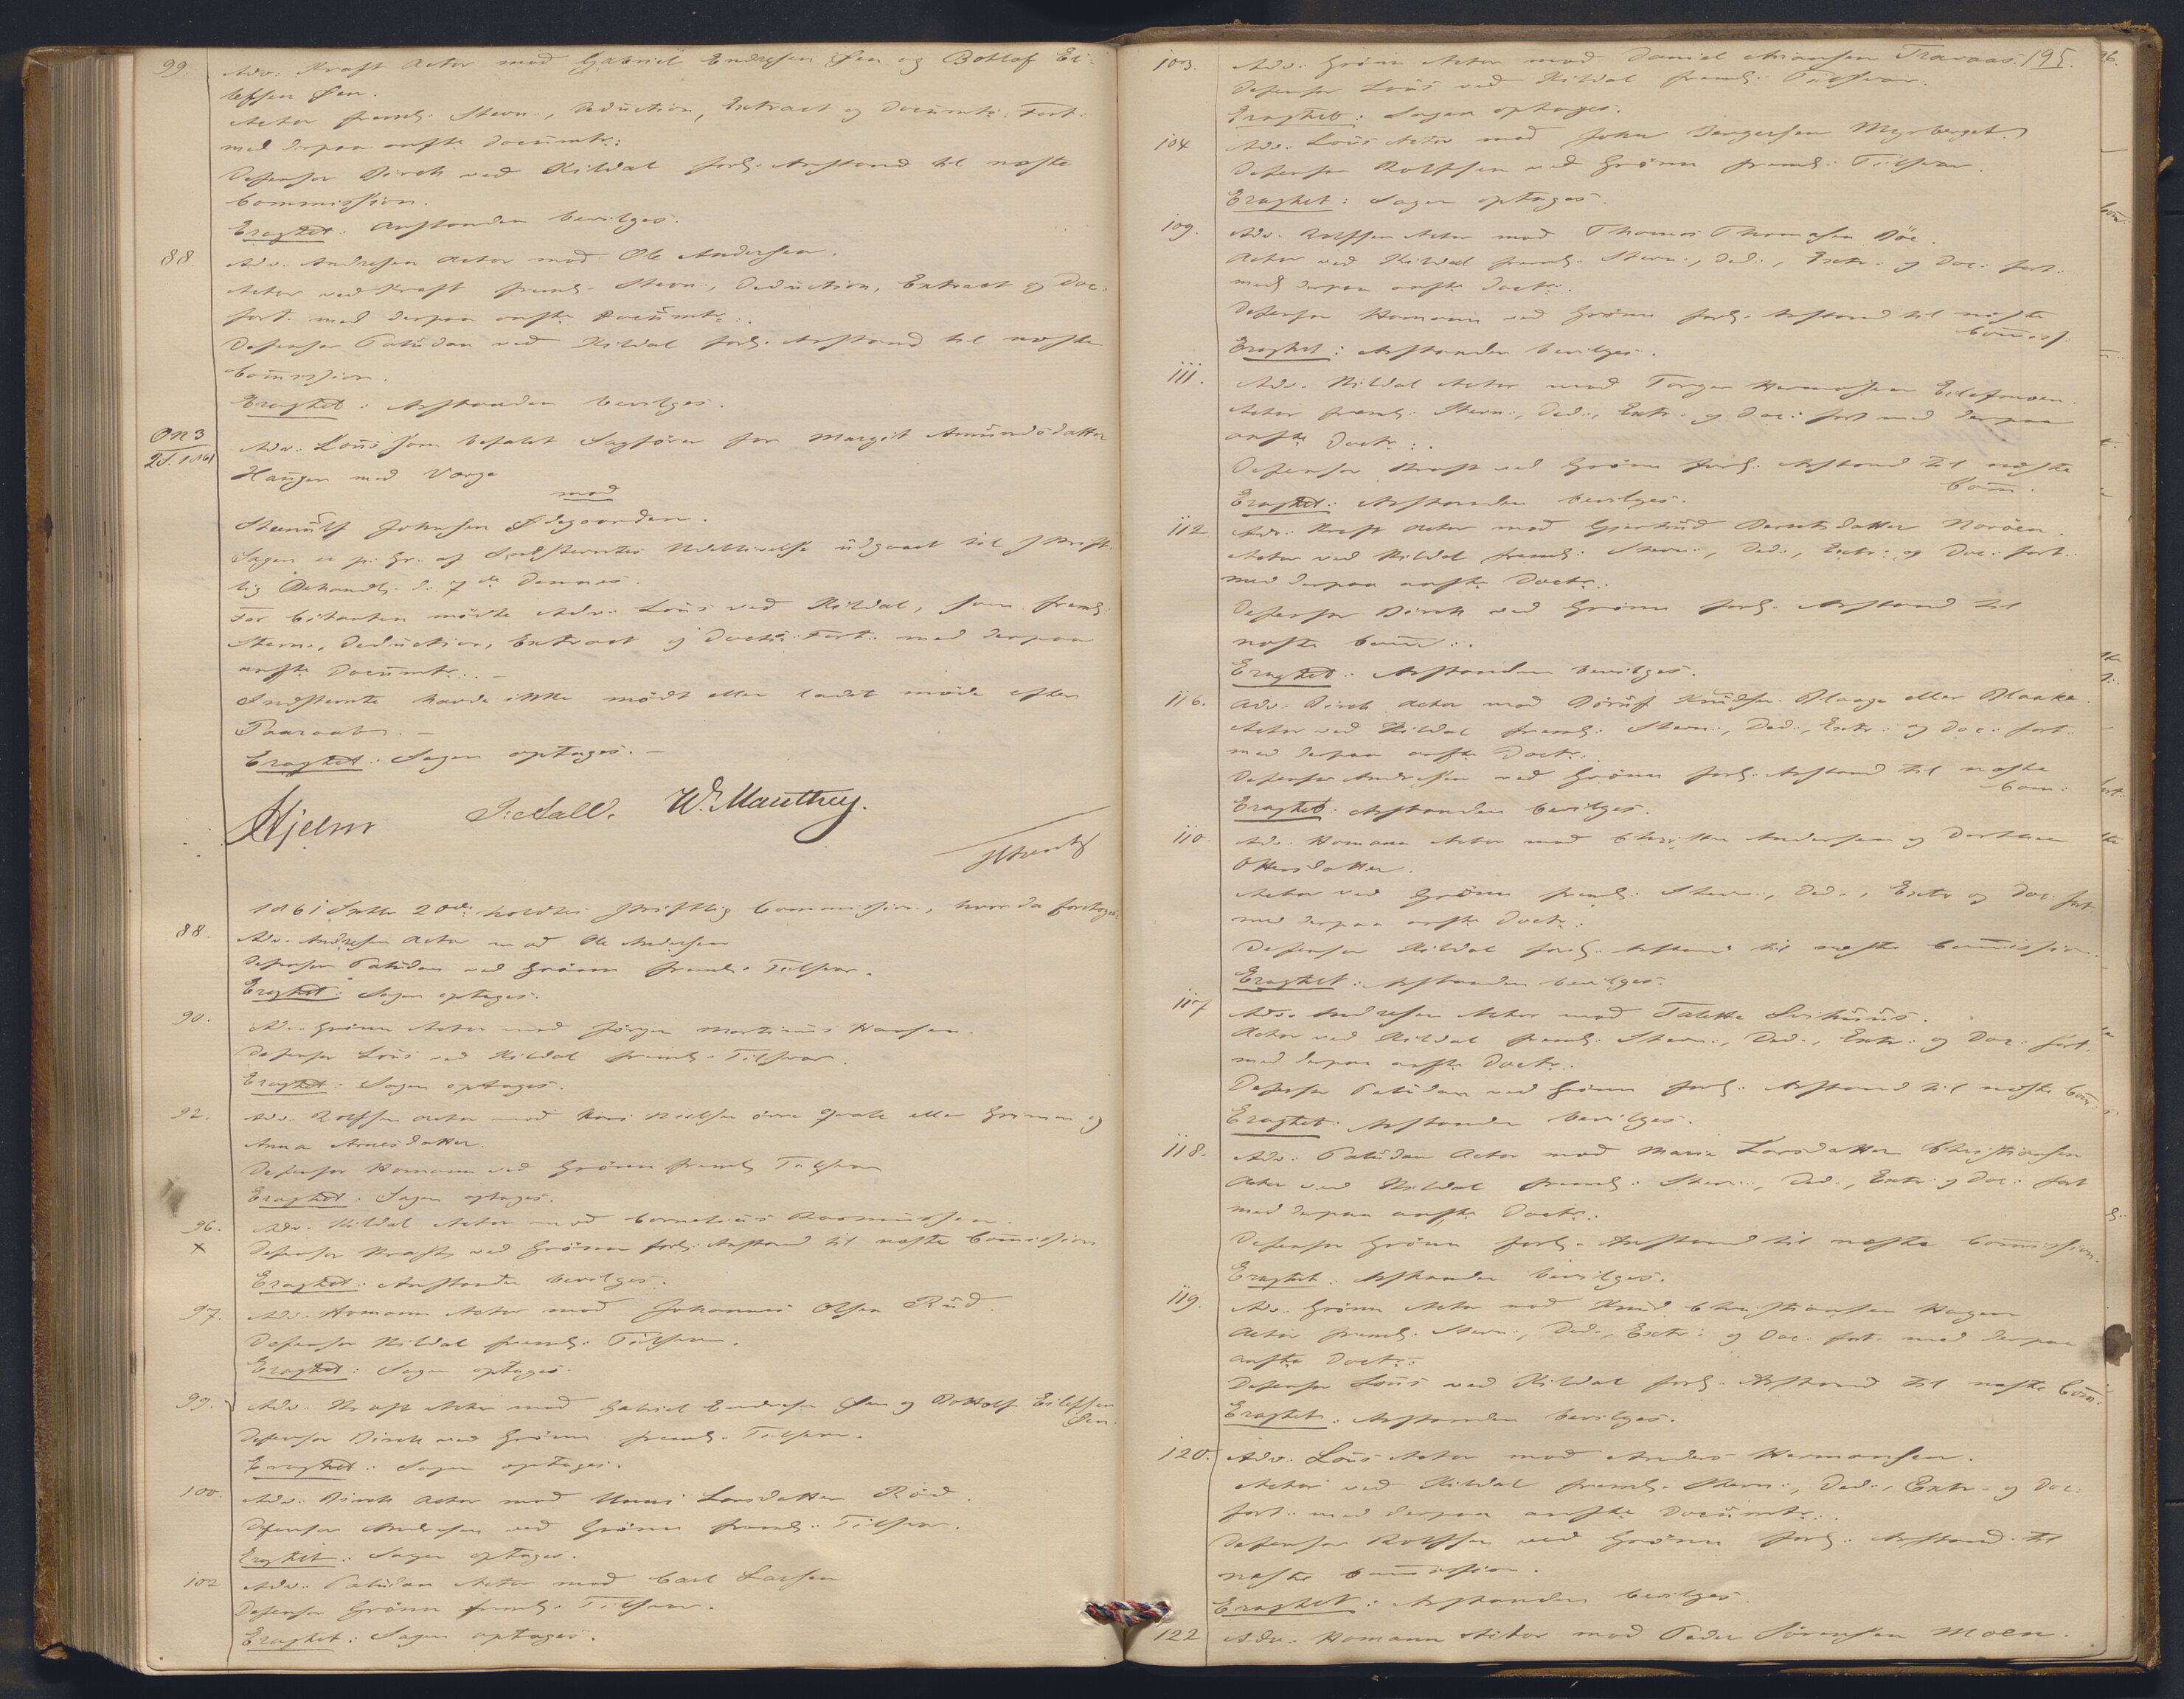 99. Adv. Kraft Actor mod Gabriel Endresen Øen og Bottolf Ei-
lefsen Øen.
Actor freml. Stevn., Deduction, Extract og Documts. Fort.
med derpaa anfte Documtr.
Defensor Birch ved Kildal forl. Anstand til næste
Commission.
Eragtet: Anstanden bevilges.
88. Adv. Andresen Actor mod Ole Andersen.
Actor ved Kraft freml. Stevn., Deduction, Extract og Doc.
fort. med derpaa anfte Documtr.
Defensor Paludan ved Kildal forl. Anstand til næste
Commission.
Eragtet: Anstanden bevilges.
Adv. Lous som befalet Sagfører for Margit Amundsdatter
Haugen med Værge
mod
Steenulf Johnsen Ødegaarden.
Sagen er p. Gr. af Indstevntes Udeblivelse udgaaet til skrift-
lig Behandl. d. 7de dennes.
For Citanten mødte Adv. Lous ved Kildal, som freml.
Stevn., Deduction, Extract og Doctr. Fort. med derpaa
anfte Documtr. –
Indstevnte havde ikke mødt eller ladet møde efter
Paaraab. –
Eragtet: Sagen optages. –
Hjelm J. Aall. W. Manthey.
1861 Septbr 20de holdtes skriftlig Commission, hvor da foretoges
88. Adv. Andresen Actor mod Ole Andersen
Defensor Paludan ved Grönn freml. Tilsvar.
Eragtet: Sagen optages.
90. Adv. Grönn Actor mod Jörgen Martinius Hansen.
Defensor Lous ved Kildal freml. Tilsvar.
Eragtet: Sagen optages.
92. Adv. Rolfsen Actor mod Hans Nielsen övre Qvale eller Grimen og
Anna Arnesdatter.
Defensor Homann ved Grönn freml. Tilsvar
Eragtet: Sagen optages.
96. Adv. Kildal Actor mod Cornelius Rasmussen.
x Defensor Kraft ved Grönn forl. Anstand til næste Commission
Eragtet: Anstanden bevilges.
97. Adv. Homann Actor mod Johannes Olsen Rud.
Defensor Kildal freml. Tilsvar.
Eragtet: Sagen optages.
99. Adv. Kraft Actor mod Gabriel Endresen Øen og Bottolf Eilefsen
Øen.
Defensor Birch ved Grönn freml. Tilsvar.
Eragtet: Sagen optages.
100. Adv. Birch Actor mod Unni Larsdatter Röd.
Defensor Andresen ved Grönn freml. Tilsvar.
Eragtet: Sagen optages.
102 Adv. Paludan Actor mod Carl Larsen
Defensor Grönn freml. Tilsvar.
Eragtet: Sagen optages.
195.
103. Adv. Grönn Actor mod Daniel Ariansen Travaas.
Defensor Lous ved Kildal freml. Tilsvar.
Eragtet: Sagen optages.
104 Adv. Lous Actor mod Johan Börgersen Myrberget.
Defensor Rolfsen ved Grönn freml. Tilsvar.
Eragtet: Sagen optages.
109. Adv. Rolfsen Actor mod Thomas Thomasen Böe.
Actor ved Kildal freml. Stevn., Ded., Extr. og Doc. fort.
med derpaa anfte Doctr.
Defensor Homann ved Grönn forl. Anstand til næste
Commiss.
Eragtet: Anstanden bevilges.
111. Adv. Kildal Actor mod Torger Hermansen
Actor freml. Stevn., Ded., Extr. og Doc. fort med derpaa
anfte Doctr.
Defensor Kraft ved Grönn forl. Anstand til næste
Comm.
Eragtet: Anstanden bevilges.
112 Adv. Kraft Actor mod Gjertrud Berntsdatter Noröen.
Actor ved Kildal freml. Stevn., Ded., Extr. og Doc. fort.
med derpaa anfte Doctr.
Defensor Birch ved Grönn forl. Anstand til
næste Comm.
Eragtet: Anstanden bevilges.
116. Adv. Birch Actor mod Börulf Knudsen Plaage eller Plaake.
Actor ved Kildal freml. Stevn., Ded., Extr. og Doc. fort.
med derpaa anfte Doctr.
Defensor Andresen ved Grönn forl. Anstand til næste
Com.
Eragtet: Anstanden bevilges.
110. Adv. Homann Actor mod Christen Andersen og Dorthea
Ottersdatter.
Actor ved Grönn freml. Stevn., Ded., Extr og Doc. fort.
med derpaa anfte Doctr.
Defensor Kildal forl. Anstand til næste Commission.
Eragtet: Anstanden bevilges.
117 Adv. Andresen Actor mod Talette Svihuus.
Actor ved Kildal freml. Stevn., Ded., Extr. og Doc. fort.
med derpaa anfte Doctr.
Defensor Paludan ved Grönn forl. Anstand til næste Com.
Eragtet: Anstanden bevilges.
118. Adv. Paludan Actor mod Maria Larsdatter Christiansen
Actor ved Kildal freml. Stevn., Ded., Extr. og Doc. fort
med derpaa anfte Doctr.
Defensor Grönn forl. Anstand til næste Commission.
Eragtet: Anstanden bevilges.
119. Adv. Grönn Actor mod Knud Christiansen Hagen
Actor freml. Stevn., Ded., Extr. og Doc. fort. med derpaa
anfte Doctr.
Defensor Lous ved Kildal forl. Anstand til næste Com.
Eragtet: Anstanden bevilges.
120. Adv. Lous Actor mod Anders Hermansen.
Actor ved Kildal freml. Stevn., Ded., Extr. og Doc.
fort. med derpaa anfte Documtr.
Defensor Rolfsen ved Grönn forl. Anstand til
næste Commission.
Eragtet: Anstanden bevilges.
122 Adv. Homann Actor mod Peder Sörensen Moen.